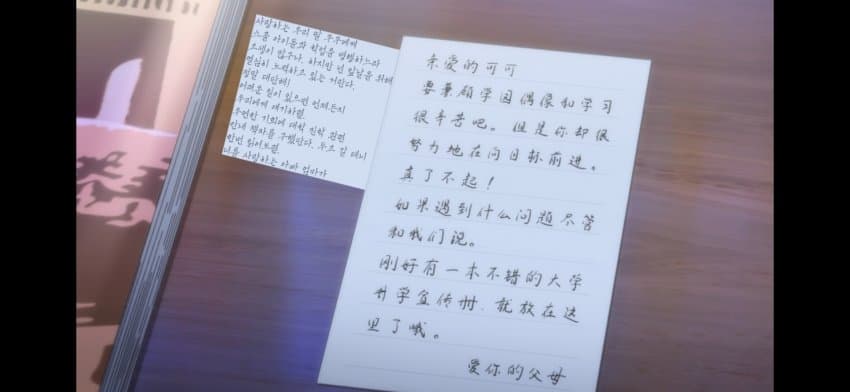 사랑하는 우리 딸 쿠쿠에게
스쿨 아이돌과 학업을 병행하느라
고생이 많구나. 하지만 넌 앞날을 위해
열심히 노력하고 있는 거란다.
정말 대단해!
어려운 일이 있으면 언제든지
우리에게 얘기하렴.
우연한 기회에 대학 진학 관련
안내 책자를 구했단다. 두고 갈 테니
한번 읽어보렴.
너를 사랑하는 아빠 엄마가
亲爱的可可
要兼顾学园偶像和学习
很辛苦吧。但是你却很
努力地在向目标前进。
真了不起！
如果遇到什么问题尽管
和我们说。
刚好有一本不错的大学
升学宣传册，就放在这
里了哦。
爱你的父母